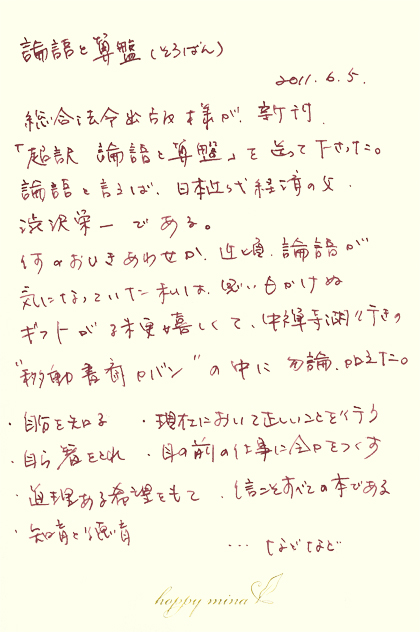 論語と算盤（そろばん）
2011.6.5.
総合法令出版様が、新刊、
「超訳 論語と算盤」を送って下さった。
論語と言えば、日本近代経済の父、
渋沢栄一である。
何のおひきあわせか、近頃、論語が
気になっていた私は、思いもかけぬ
ギフトが殊更嬉しくて、中禅寺湖行きの
“移動書斎カバン”の中に勿論、加えた。
・自分を知る ・現在において正しいことを行う
・自ら箸をとれ ・目の前の仕事に全力をつくす
・道理ある希望をもて ・信こそすべての本である
・知育と徳育
… などなど
happy mina